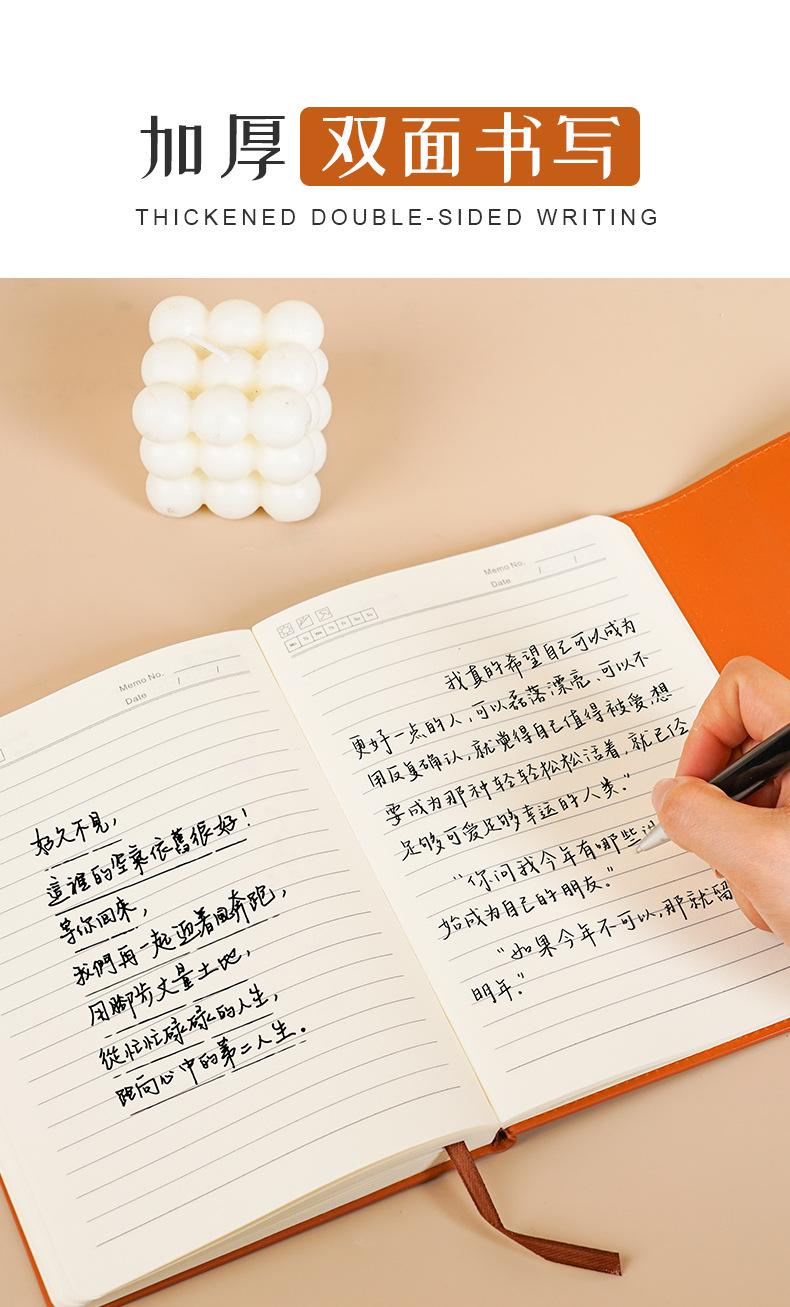 加厚双面书写
THICKENED DOUBLE-SIDED WRITING
Memo No.
Date / /
好久不見,
這誰的空氣依舊很好!
等你回来,
我們再一起迎着風奔跑,
用腳步丈量土地,
從忙忙碌碌的人生,
跑向心中的第二人生。
Memo No.
Date / /
Mo Tu We Th Fr Sa Su
我真的希望自己可以成为
更好一点的人,可以磊落漂亮、可以不
用反复确认,就觉得自己值得被爱,想
要成为那种轻轻松松活着,就已经
足够可爱足够幸运的人类。"
"你问我今年有哪些
始成为自己的朋友。"
"如果今年不可以,那就留
明年。"